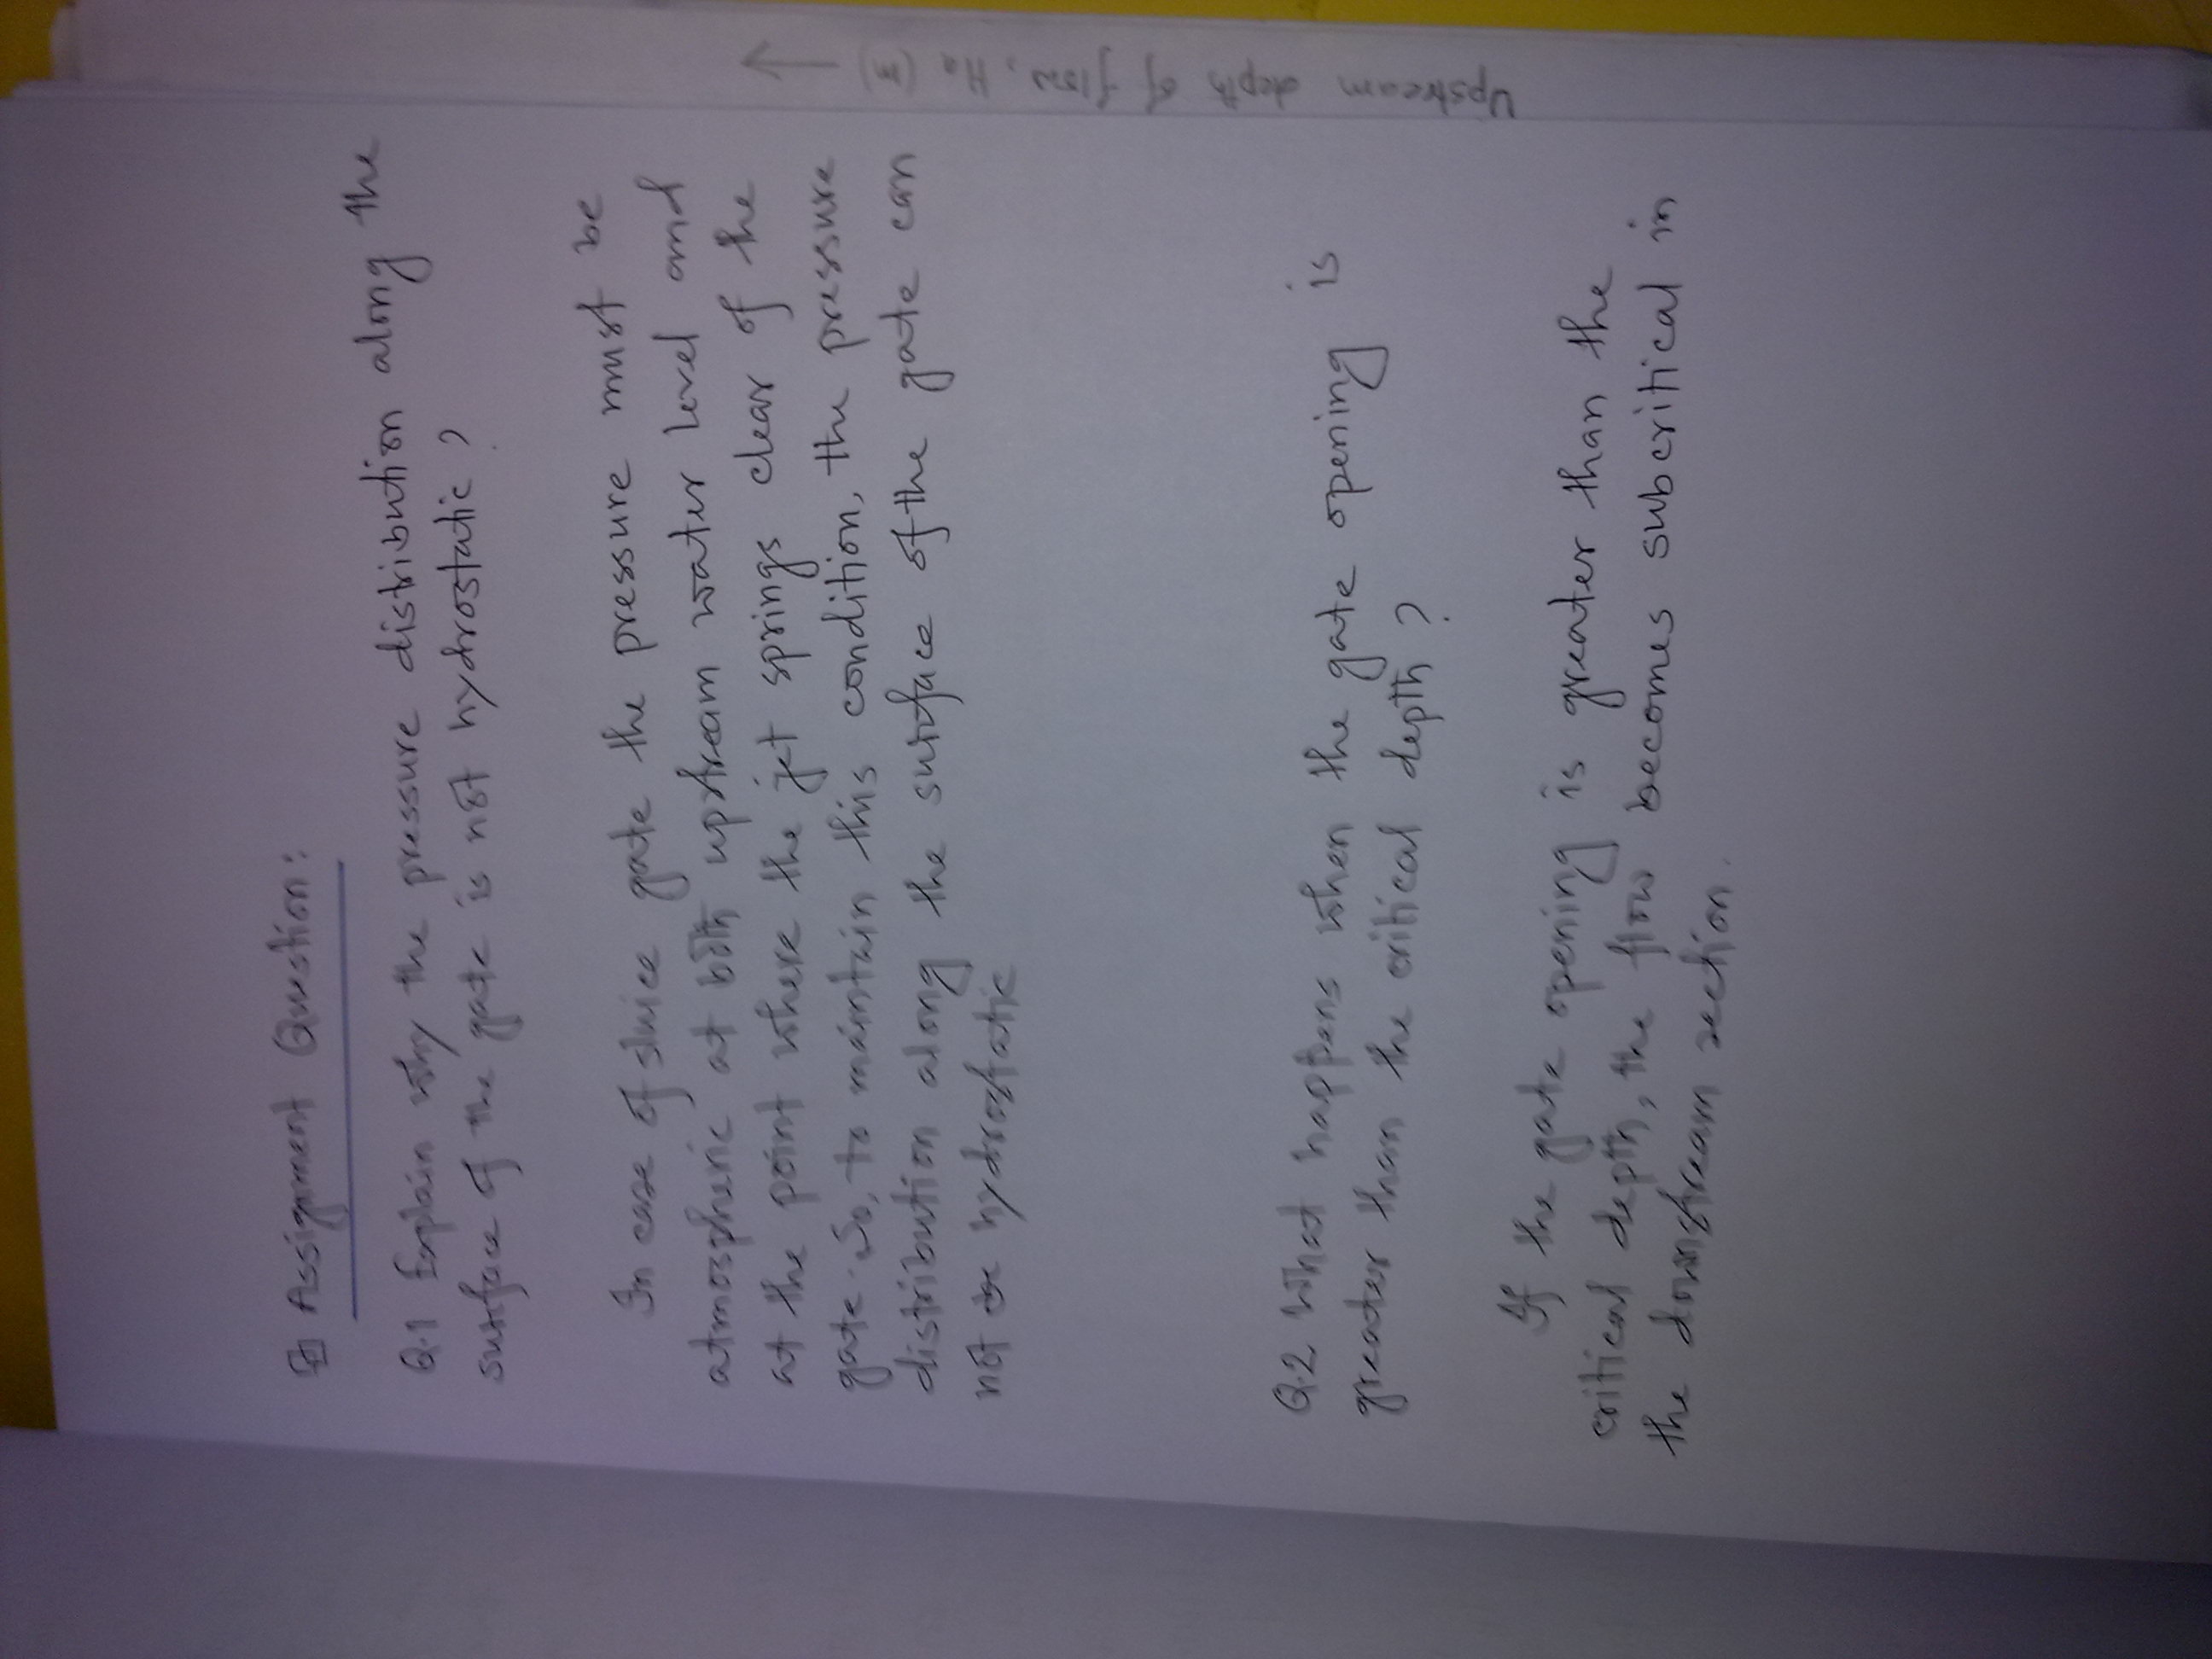 Assignment Question:
Q.1 Explain why the pressure distribution along the
surface of the gate is not hydrostatic?
In case of sluice gate the pressure must be
atmospheric at both upstream water level and
at the point where the jet springs clear of the
gate. So, to maintain this condition, the pressure
distribution along the surface of the gate can
not be hydrostatic
Q.2 What happens when the gate opening is
greater than the critical depth?
If the gate opening is greater than the
critical depth, the flow becomes subcritical in
the downstream section.
Upstream depth of flow, Ha (m) →